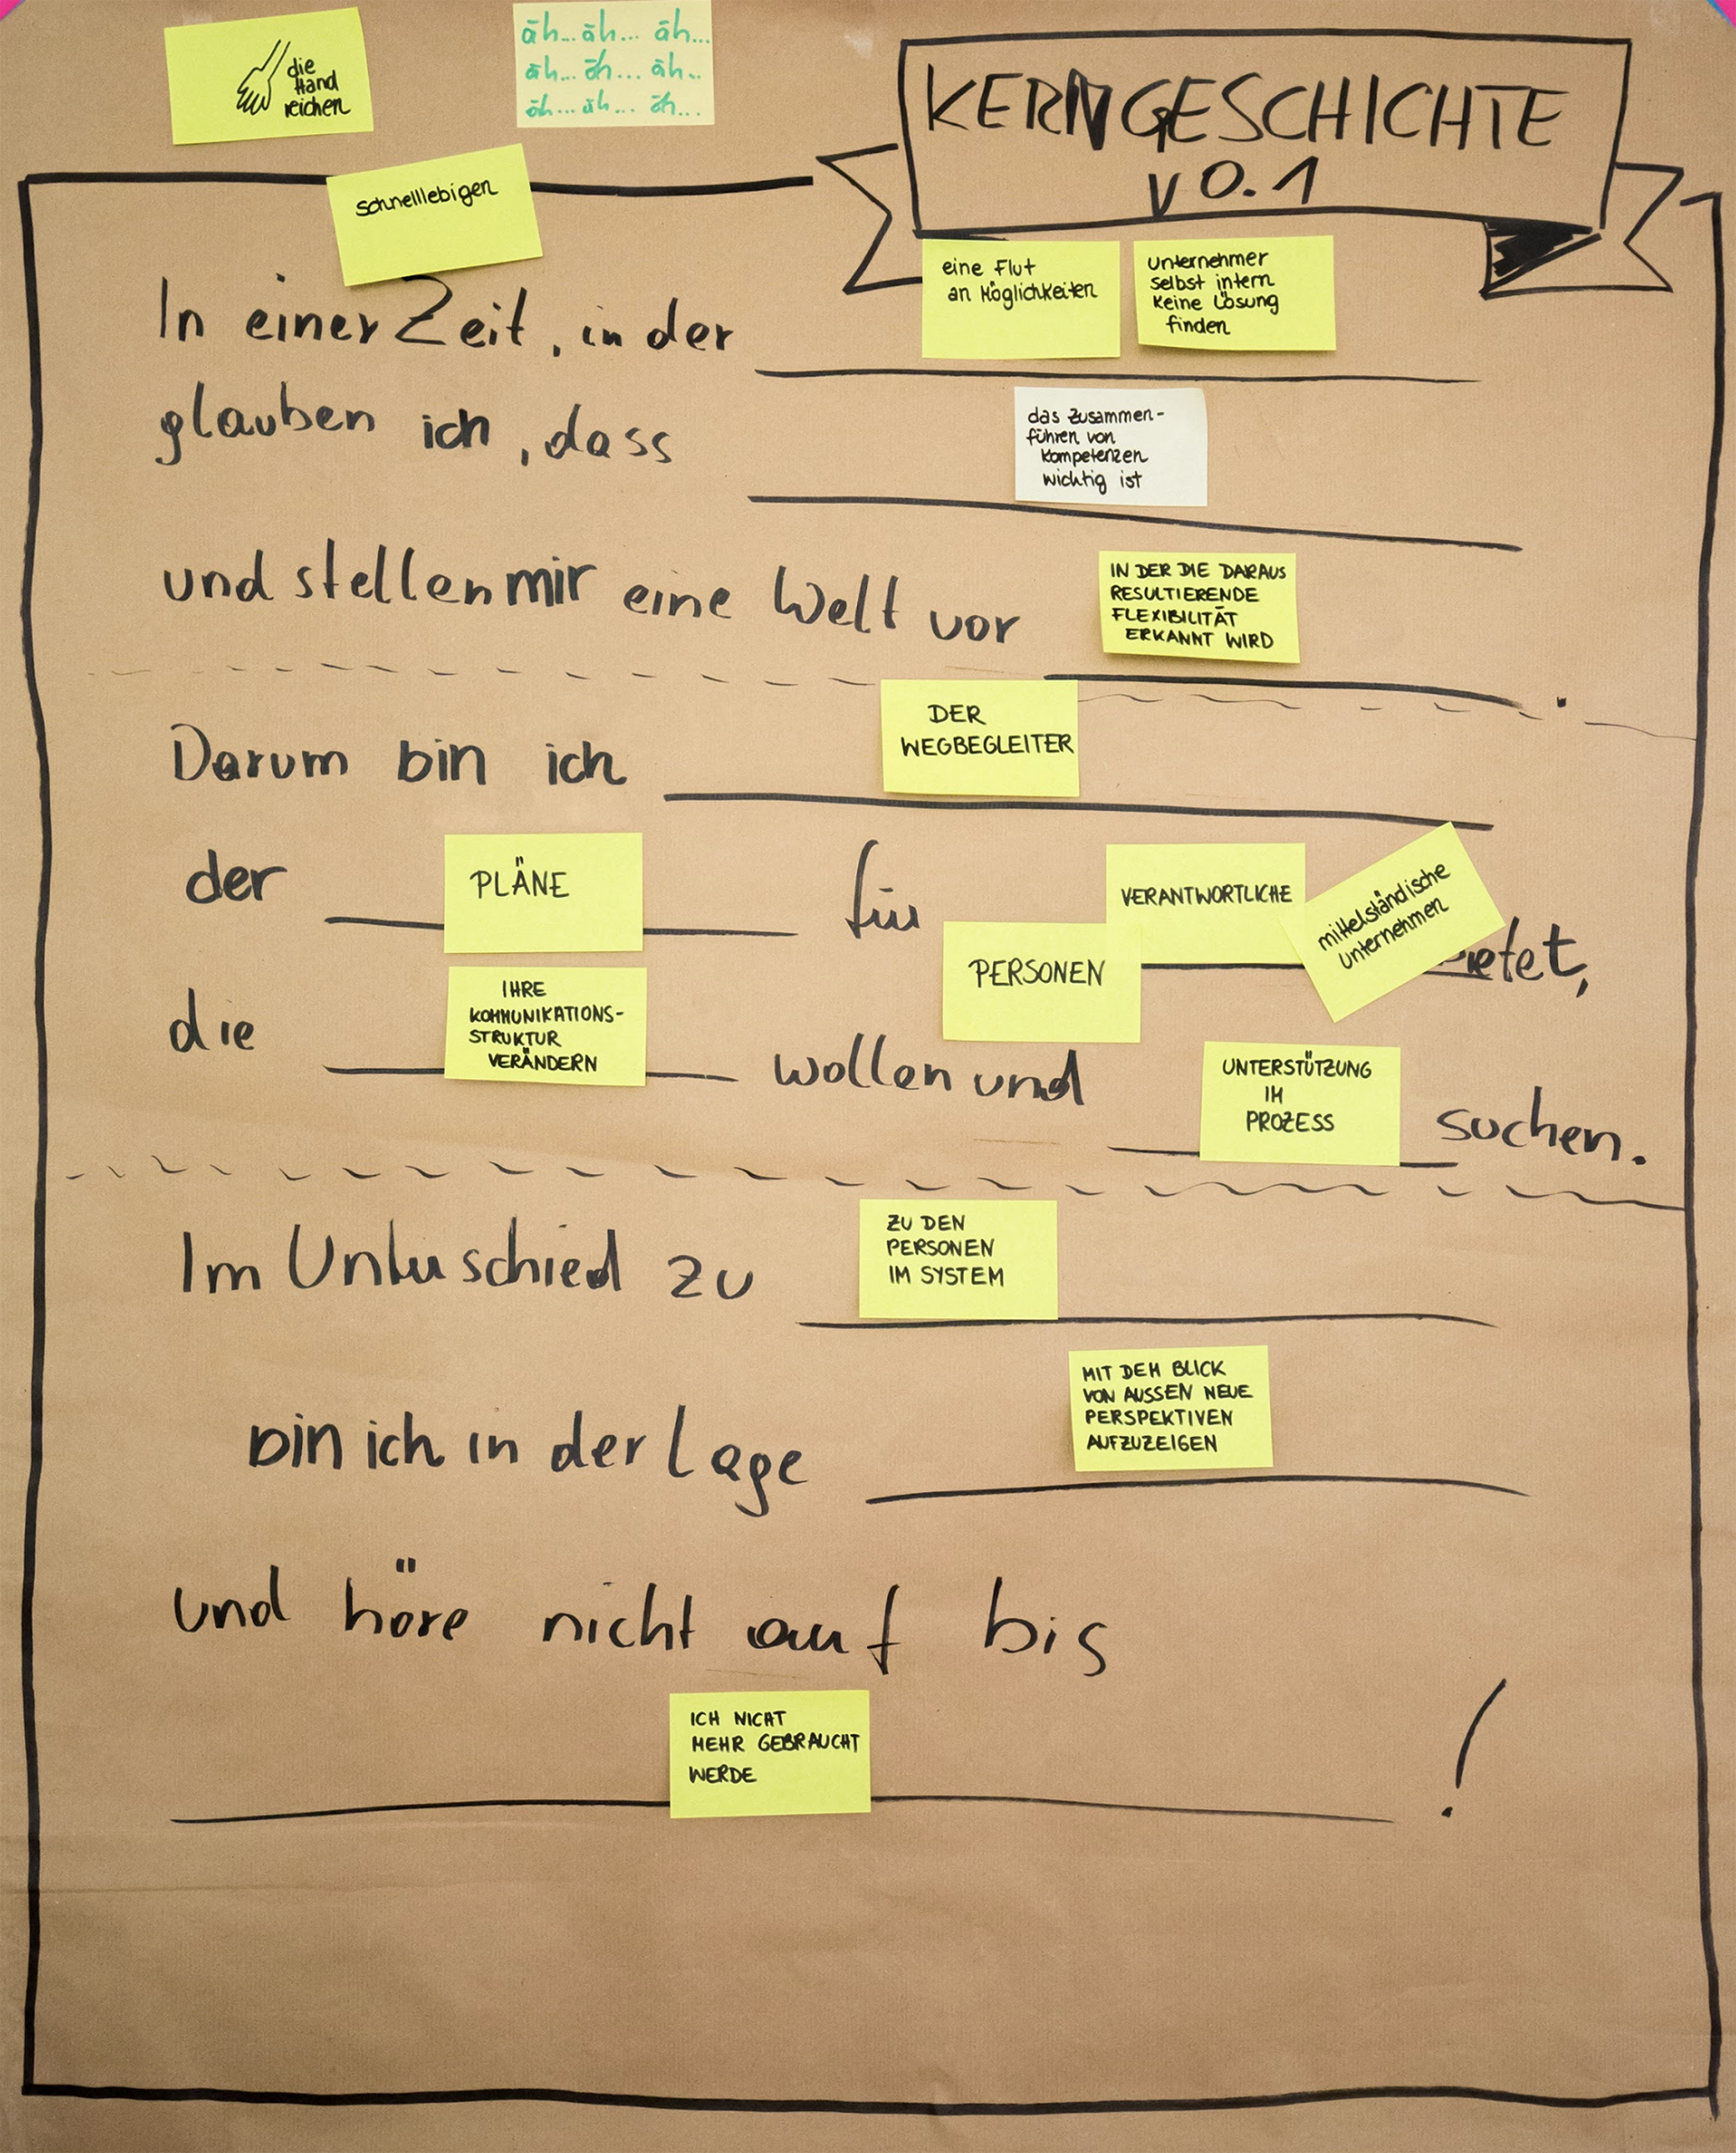 die
Hand
reichen
äh... äh... äh...
äh... äh... äh...
äh... äh... äh...
KERNGESCHICHTE
v 0.1
schnelllebigen
In einer Zeit, in der
eine Flut
an Möglichkeiten
Unternehmer
selbst intern
keine Lösung
finden
glauben ich, dass
das Zusammen-
führen von
Kompetenzen
wichtig ist
und stellen mir eine Welt vor
IN DER DIE DARAUS
RESULTIERENDE
FLEXIBILITÄT
ERKANNT WIRD
.
Darum bin ich
DER
WEGBEGLEITER
der
PLÄNE
für
PERSONEN
VERANTWORTLICHE
mittelständische
Unternehmen
ietet,
die
IHRE
KOMMUNIKATIONS-
STRUKTUR
VERÄNDERN
wollen und
UNTERSTÜTZUNG
IM
PROZESS
suchen.
Im Unterschied zu
ZU DEN
PERSONEN
IM SYSTEM
bin ich in der Lage
MIT DEM BLICK
VON AUSSEN NEUE
PERSPEKTIVEN
AUFZUZEIGEN
und höre nicht auf bis
ICH NICHT
MEHR GEBRAUCHT
WERDE
!